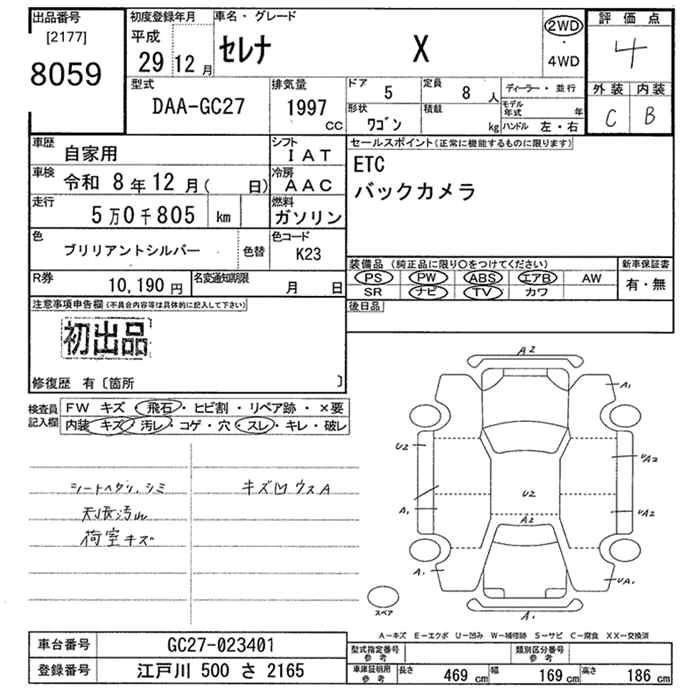 出品番号
[2177]
8059
初度登録年月
平成
29年12月
車名・グレード
セレナ X
2WD
・
4WD
評価点
4
外装 内装
C B
型式
DAA-GC27
排気量
1997
CC
ドア
5
定員
8人
形状
ワゴン
積載
kg
ディーラー・並行
モデル年式 年
ハンドル 左・右
車歴
自家用
シフト
IAT
車検
令和 8年12月( 日)
冷房
AAC
走行
5万0千805 km
燃料
ガソリン
色
ブリリアントシルバー
色替
色コード
K23
R券
10,190円
名変通知期限
月 日
セールスポイント(正常に機能するものに限ります)
ETC
バックカメラ
装備品 (純正品に限り○をつけてください)
PS PW ABS エアB AW
SR ナビ TV カワ
新車保証書
有・無
後日品
注意事項申告欄(不具合内容等は具体的に記入して下さい)
初出品
修復歴 有〔箇所 〕
検査員記入欄
FW キズ・飛石・ヒビ割・リペア跡・×要
内装 キズ・汚レ・コゲ・穴・スレ・キレ・破レ
シートヘタリ、シミ
天張汚れ
荷室キズ
キズ凹ウスA
A2
A1
U2
UA2
A1
U2
A2
UA2
A1
UA1
A1
スペア
A-キズ E-エクボ U-凹み W-補修跡 S-サビ C-腐食 XX-交換済
車台番号
GC27-023401
登録番号
江戸川 500 さ 2165
型式指定番号
参考
類別区分番号
参考
車庫証明用
参考
長さ 469 cm 幅 169 cm 高さ 186 cm